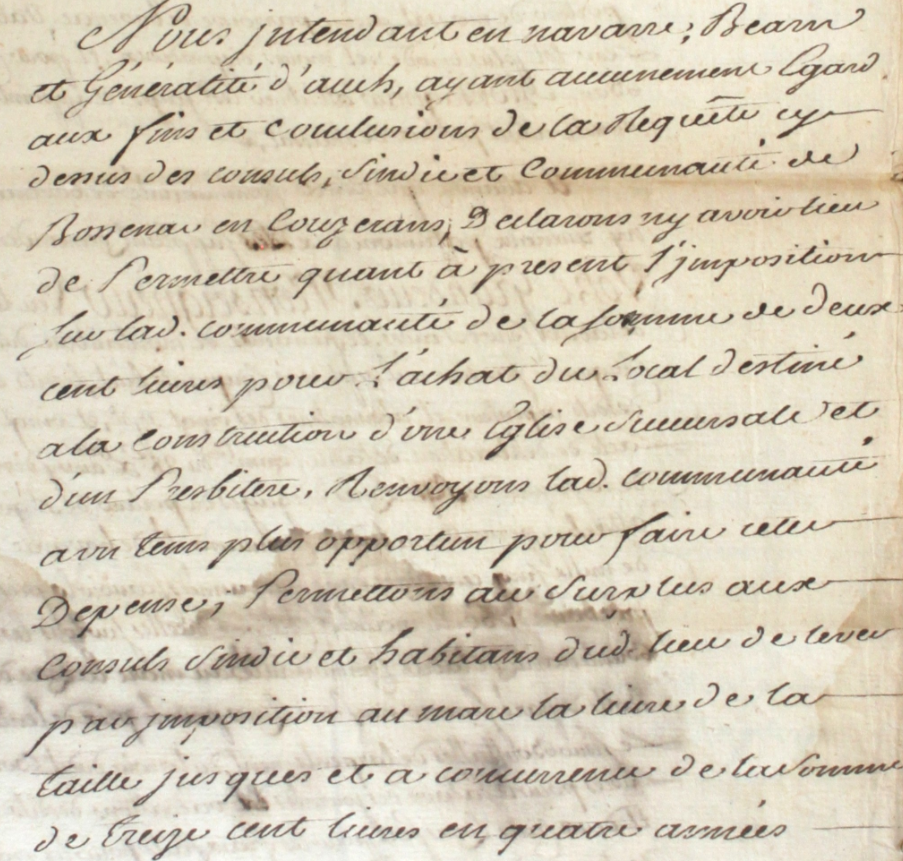 Nous jntendant en navarre, Bearn
et Généralité d'auch, ayant aucunement Egard
aux fins et Conclusions de la Requête cy
dessus des consuls, sindic et Communauté de
Bossenac en Couzerans, Declarons ny avoir lieu
de Permettre quant à present l'jmposition
sur lad. communauté de la somme de deux
cent livres pour l'achat du Local destiné
a la Construction d'une Eglise succursale et
d'un Presbitere, Renvoyons lad. communauté
a un tems plus opportun pour faire cette
Depense, Permettons au surplus aux
Consuls sindic et habitans dud. lieu de lever
par jmposition au marc la livre de la
taille jusques et a concurrence de la somme
de treize cent livres en quatre années